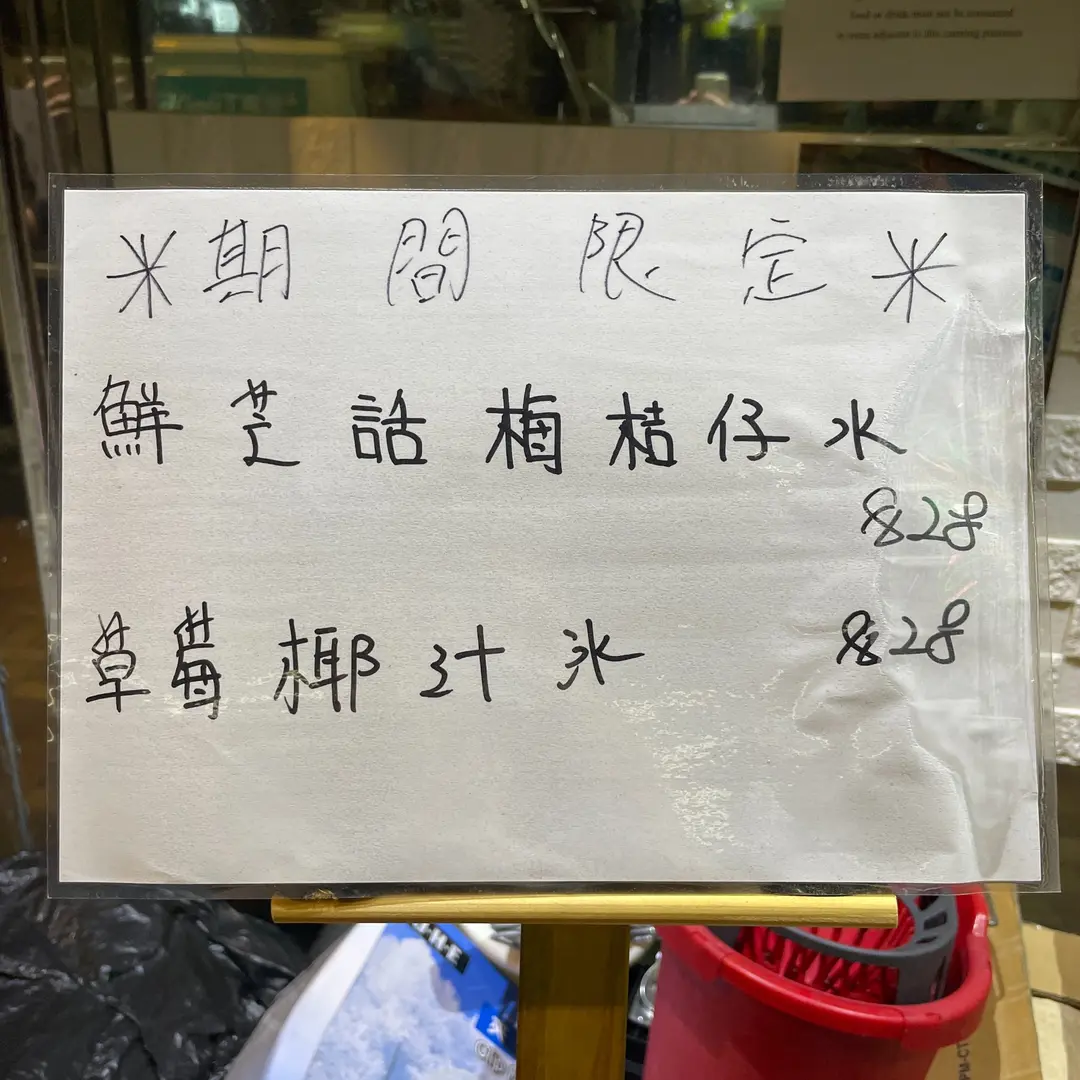 ＊期間限定＊
鮮芝話梅桔仔水
$28
草莓椰汁氷 $28